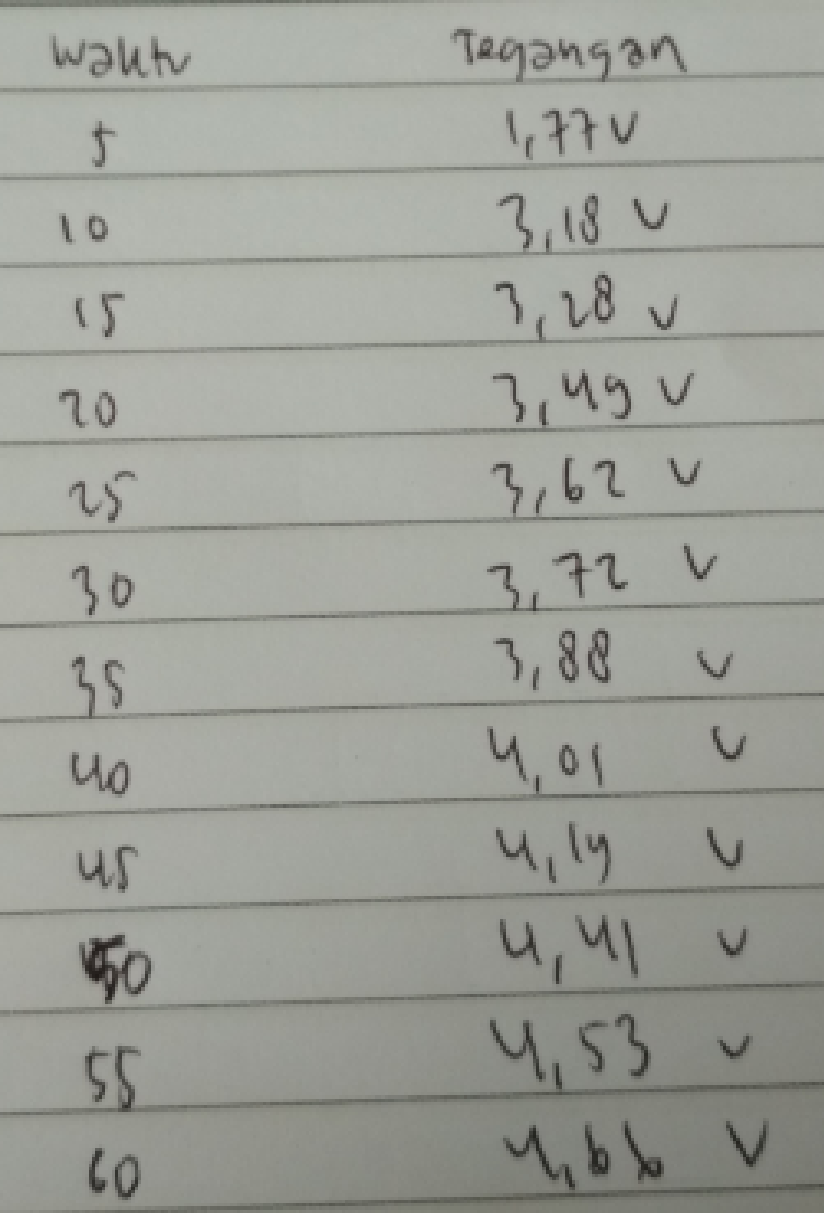 Waktu Tegangan
5 1,77 V
10 3,18 V
15 3,28 V
20 3,49 V
25 3,62 V
30 3,72 V
35 3,88 V
40 4,01 V
45 4,19 V
50 4,41 V
55 4,53 V
60 4,66 V